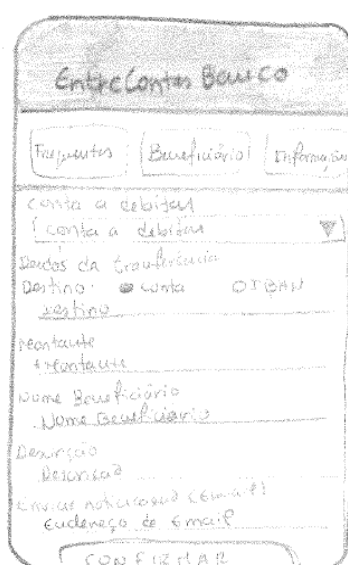 Entre Contas Banco
Frequentes Beneficiário Informação
Conta a debitar
Conta a debitar
Dados da tranferência
Destino: Conta OIBAN
Destino
Montante
Montante
Nome Beneficiário
Nome Beneficiário
Descrição
Descrição
Enviar notificação (Email)
Endereço de Email
CONFIRMAR